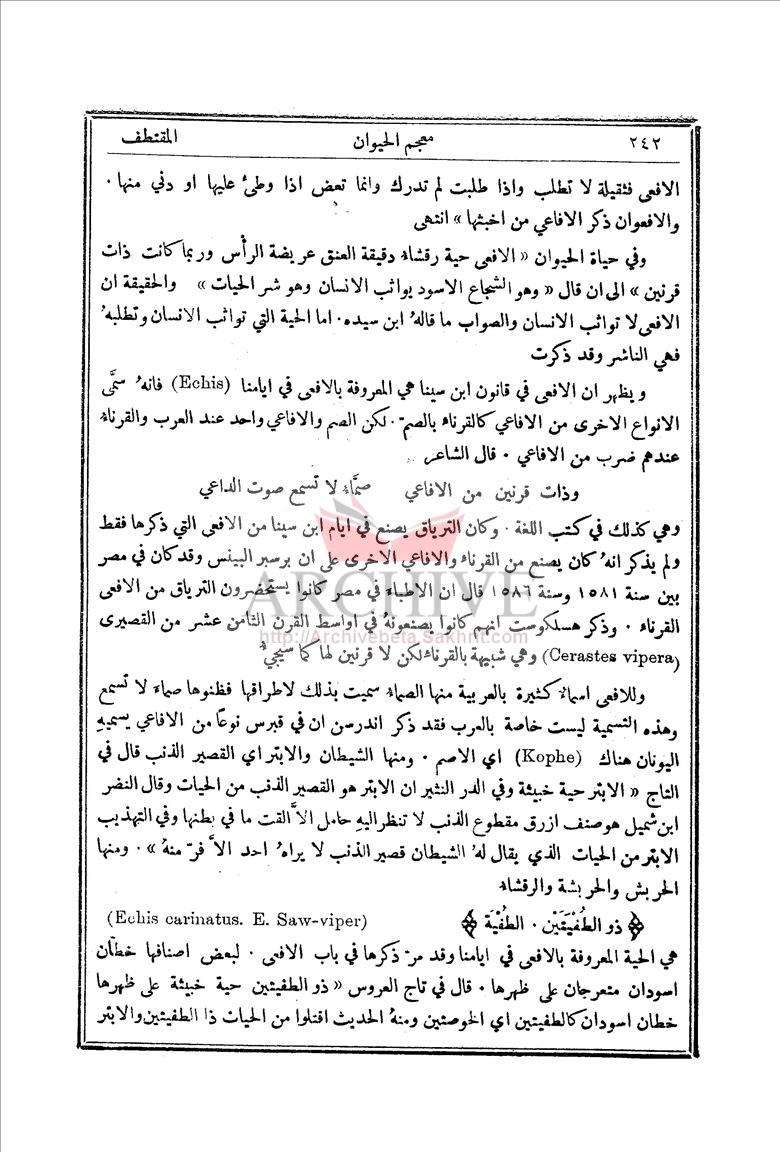 ٢٤٢ معجم الحيوان المقتطف
الافعى فثقيلة لا تطلب واذا طلبت لم تدرك وانما تعض اذا وطئ عليها او دني منها ·
والافعوان ذكر الافاعي من اخبثها » انتهى
وفي حياة الحيوان « الافعى حية رقشاء دقيقة العنق عريضة الرأس وربما كانت ذات
قرنين » الى ان قال « وهو الشجاع الاسود يواثب الانسان وهو شر الحيات » والحقيقة ان
الافعى لا تواثب الانسان والصواب ما قالهُ ابن سيده · اما الحية التي تواثب الانسان وتطلبهُ
فهي الناشر وقد ذكرت
ويظهر ان الافعى في قانون ابن سينا هي المعروفة بالافعى في ايامنا (Echis) فانهُ سمَّى
الانواع الاخرى من الافاعي كالقرناء بالصمّ · لكن الصم والافاعي واحد عند العرب والقرناء
عندهم ضرب من الافاعي · قال الشاعر
وذات قرنين من الافاعي صمَّاء لا تسمع صوت الداعي
وهي كذلك في كتب اللغة · وكان الترياق يصنع في ايام ابن سينا من الافعى التي ذكرها فقط
ولم يذكر انهُ كان يصنع من القرناء والافاعي الاخرى على ان برسبر البينس وقد كان في مصر
بين سنة ١٥٨١ وسنة ١٥٨٦ قال ان الاطباء في مصر كانوا يستحضرون الترياق من الافعى
القرناء · وذكر هسلكوست انهم كانوا يصنعونهُ في اواسط القرن الثامن عشر من القصيرى
(Cerastes vipera) وهي شبيهة بالقرناء لكن لا قرنين لها كما سيجيءُ
وللافعى اسماء كثيرة بالعربية منها الصماء سميت بذلك لاطراقها فظنوها صماء لا تسمع
وهذه التسمية ليست خاصة بالعرب فقد ذكر اندرسن ان في قبرس نوعًا من الافاعي يسميهِ
اليونان هناك (Kophe) اي الاصم · ومنها الشيطان والابتر اي القصير الذنب قال في
التاج « الابتر حية خبيثة وفي الدر النثير ان الابتر هو القصير الذنب من الحيات وقال النضر
ابن شميل هو صنف ازرق مقطوع الذنب لا تنظر اليهِ حامل الاَّ القت ما في بطنها وفي التهذيب
الابتر من الحيات الذي يقال لهُ الشيطان قصير الذنب لا يراهُ احد الاَّ فرّ منهُ » · ومنها
الحربش والحربشة والرقشاء
﴿ ذو الطُفْيَتَين · الطُفْيَة ﴾ (Echis carinatus. E. Saw-viper)
هي الحية المعروفة بالافعى في ايامنا وقد مرّ ذكرها في باب الافعى · لبعض اصنافها خطَّان
اسودان متعرجان على ظهرها · قال في تاج العروس « ذو الطفيتين حية خبيثة على ظهرها
خطان اسودان كالطفيتين اي الخوصتين ومنهُ الحديث اقتلوا من الحيات ذا الطفيتين والابتر
ARCHIVE
http://Archivebeta.Sakhrit.com